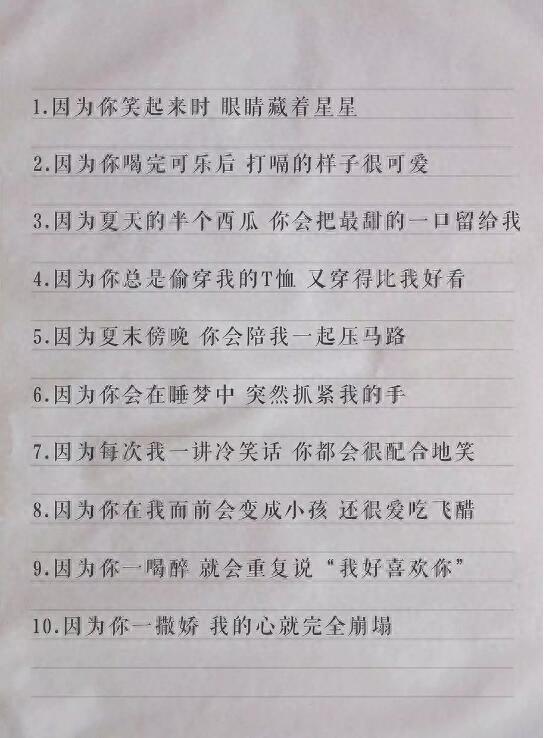 1.因为你笑起来时 眼睛藏着星星
2.因为你喝完可乐后 打嗝的样子很可爱
3.因为夏天的半个西瓜 你会把最甜的一口留给我
4.因为你总是偷穿我的T恤 又穿得比我好看
5.因为夏末傍晚 你会陪我一起压马路
6.因为你会在睡梦中 突然抓紧我的手
7.因为每次我一讲冷笑话 你都会很配合地笑
8.因为你在我面前会变成小孩 还很爱吃飞醋
9.因为你一喝醉 就会重复说“我好喜欢你”
10.因为你一撒娇 我的心就完全崩塌